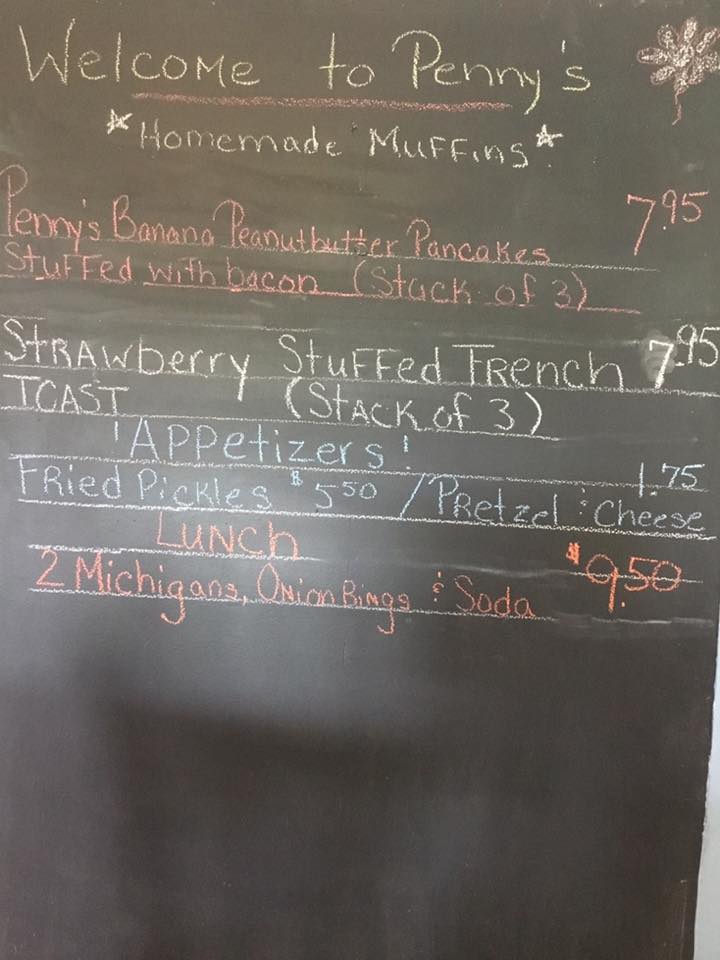 Welcome to Penny's
*Homemade Muffins*
Penny's Banana Peanutbutter Pancakes 7.95
Stuffed with bacon (Stack of 3)
Strawberry Stuffed French 7.95
Toast (Stack of 3)
'Appetizers'
1.75
Fried Pickles $5.50 / Pretzel & Cheese
Lunch
2 Michigans, Onion Rings & Soda $9.50